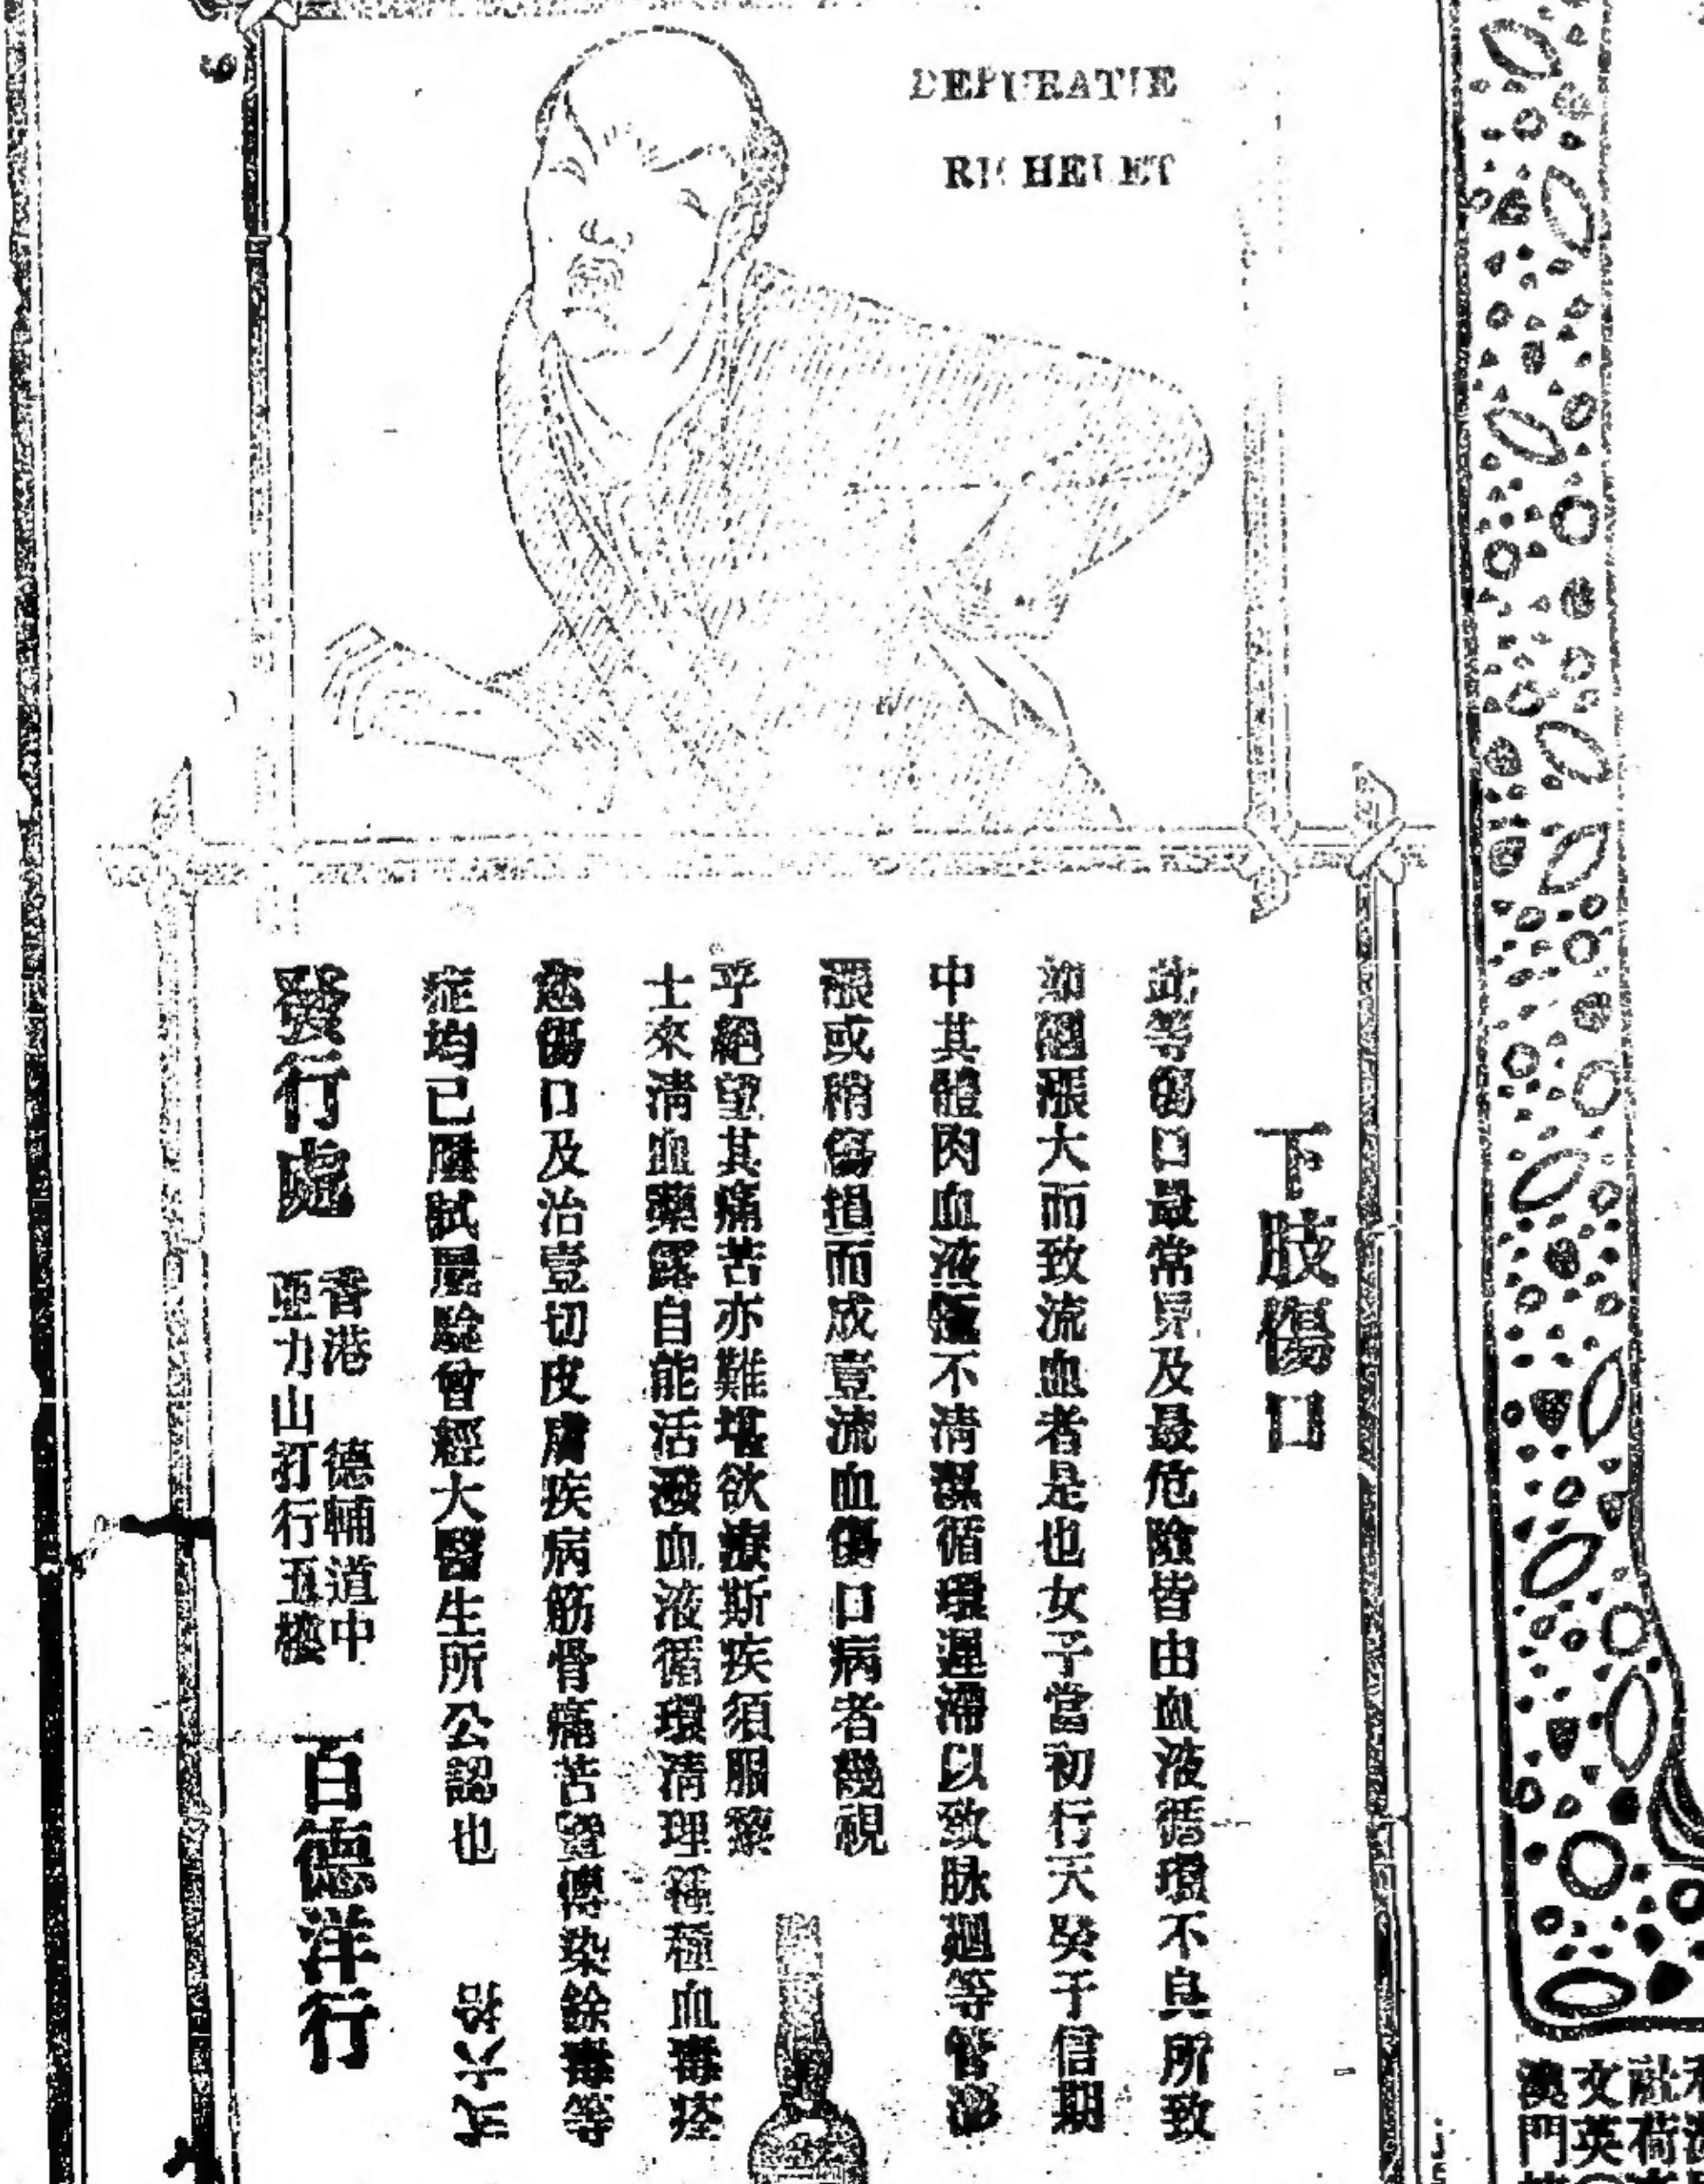 RICHELET
下肢傷口
此等傷口最常見及最危險皆由血液循環不良所致
漲大而致流血者是也女子當初行天癸于信期
中其體肉血液不清循環遲滯以致脉迴等管膨
漲或稍傷損而成壹流血傷口病者幾視
乎絕望其痛苦亦難堪欲療斯疾須服黎
士來清血藥露自能活潑血液循環清理種種血毒痊
愈傷口及治壹切皮膚疾病筋骨痛苦暨傳染餘毒等
症均己屢試屢驗曾經大醫生所公認也
發行處
香港 德輔道中
亞力山打行五樓
百德洋行
文英
澳門